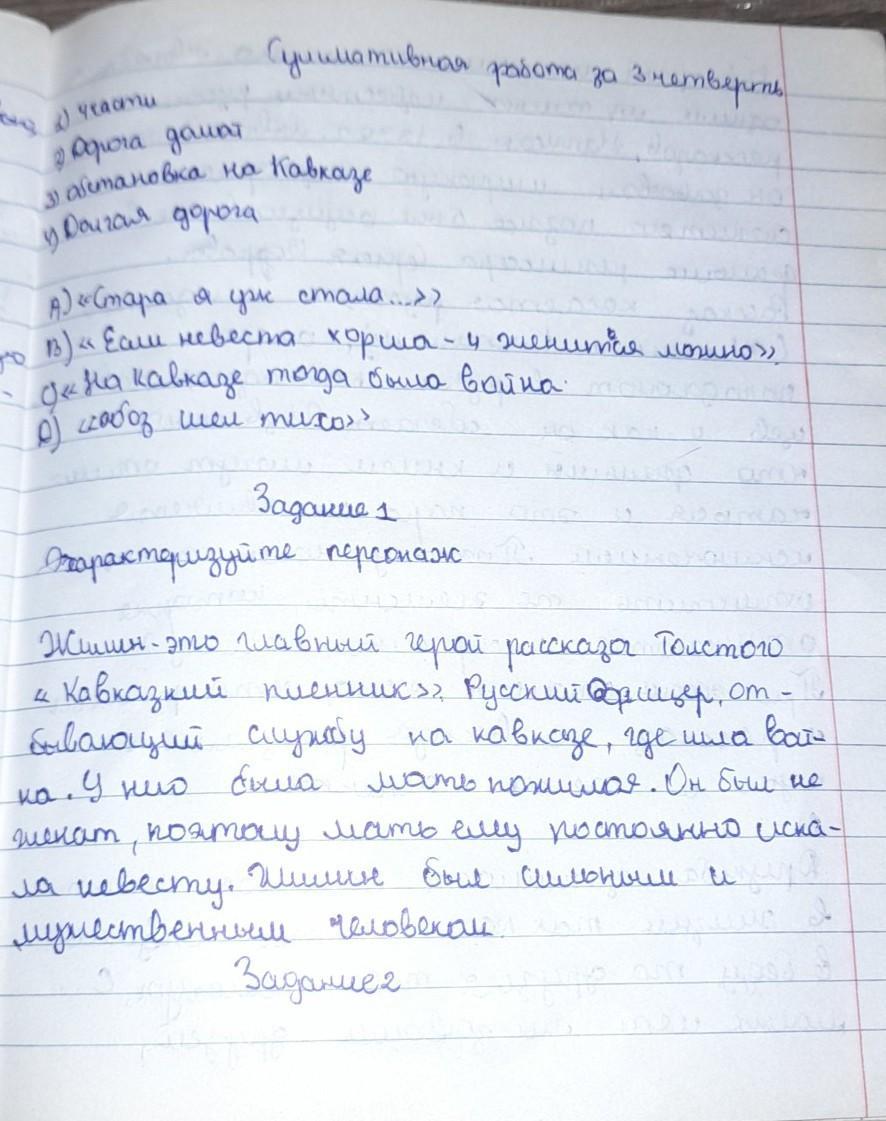 Суммативная работа за 3 четверть
1) части
2) Дорога дамат
3) обстановка на Кавказе
4) Долгая дорога
A) «Стара я уж стала...»
B) «Если невеста хорша - и женится можно»
C) «На Кавказе тогда была война.
D) «обоз шел тихо»
Задание 1
Охарактеризуйте персонаж
Жилин - это главный герой рассказа Толстого
«Кавказкий пленник». Русский офицер, от-
бывающий службу на кавказе, где шла вой-
на. У нио была мать пожилая. Он был не
женат, поэтому мать ему постоянно иска-
ла невесту. Жилин был сильным и
мужественным человеком.
Задание 2